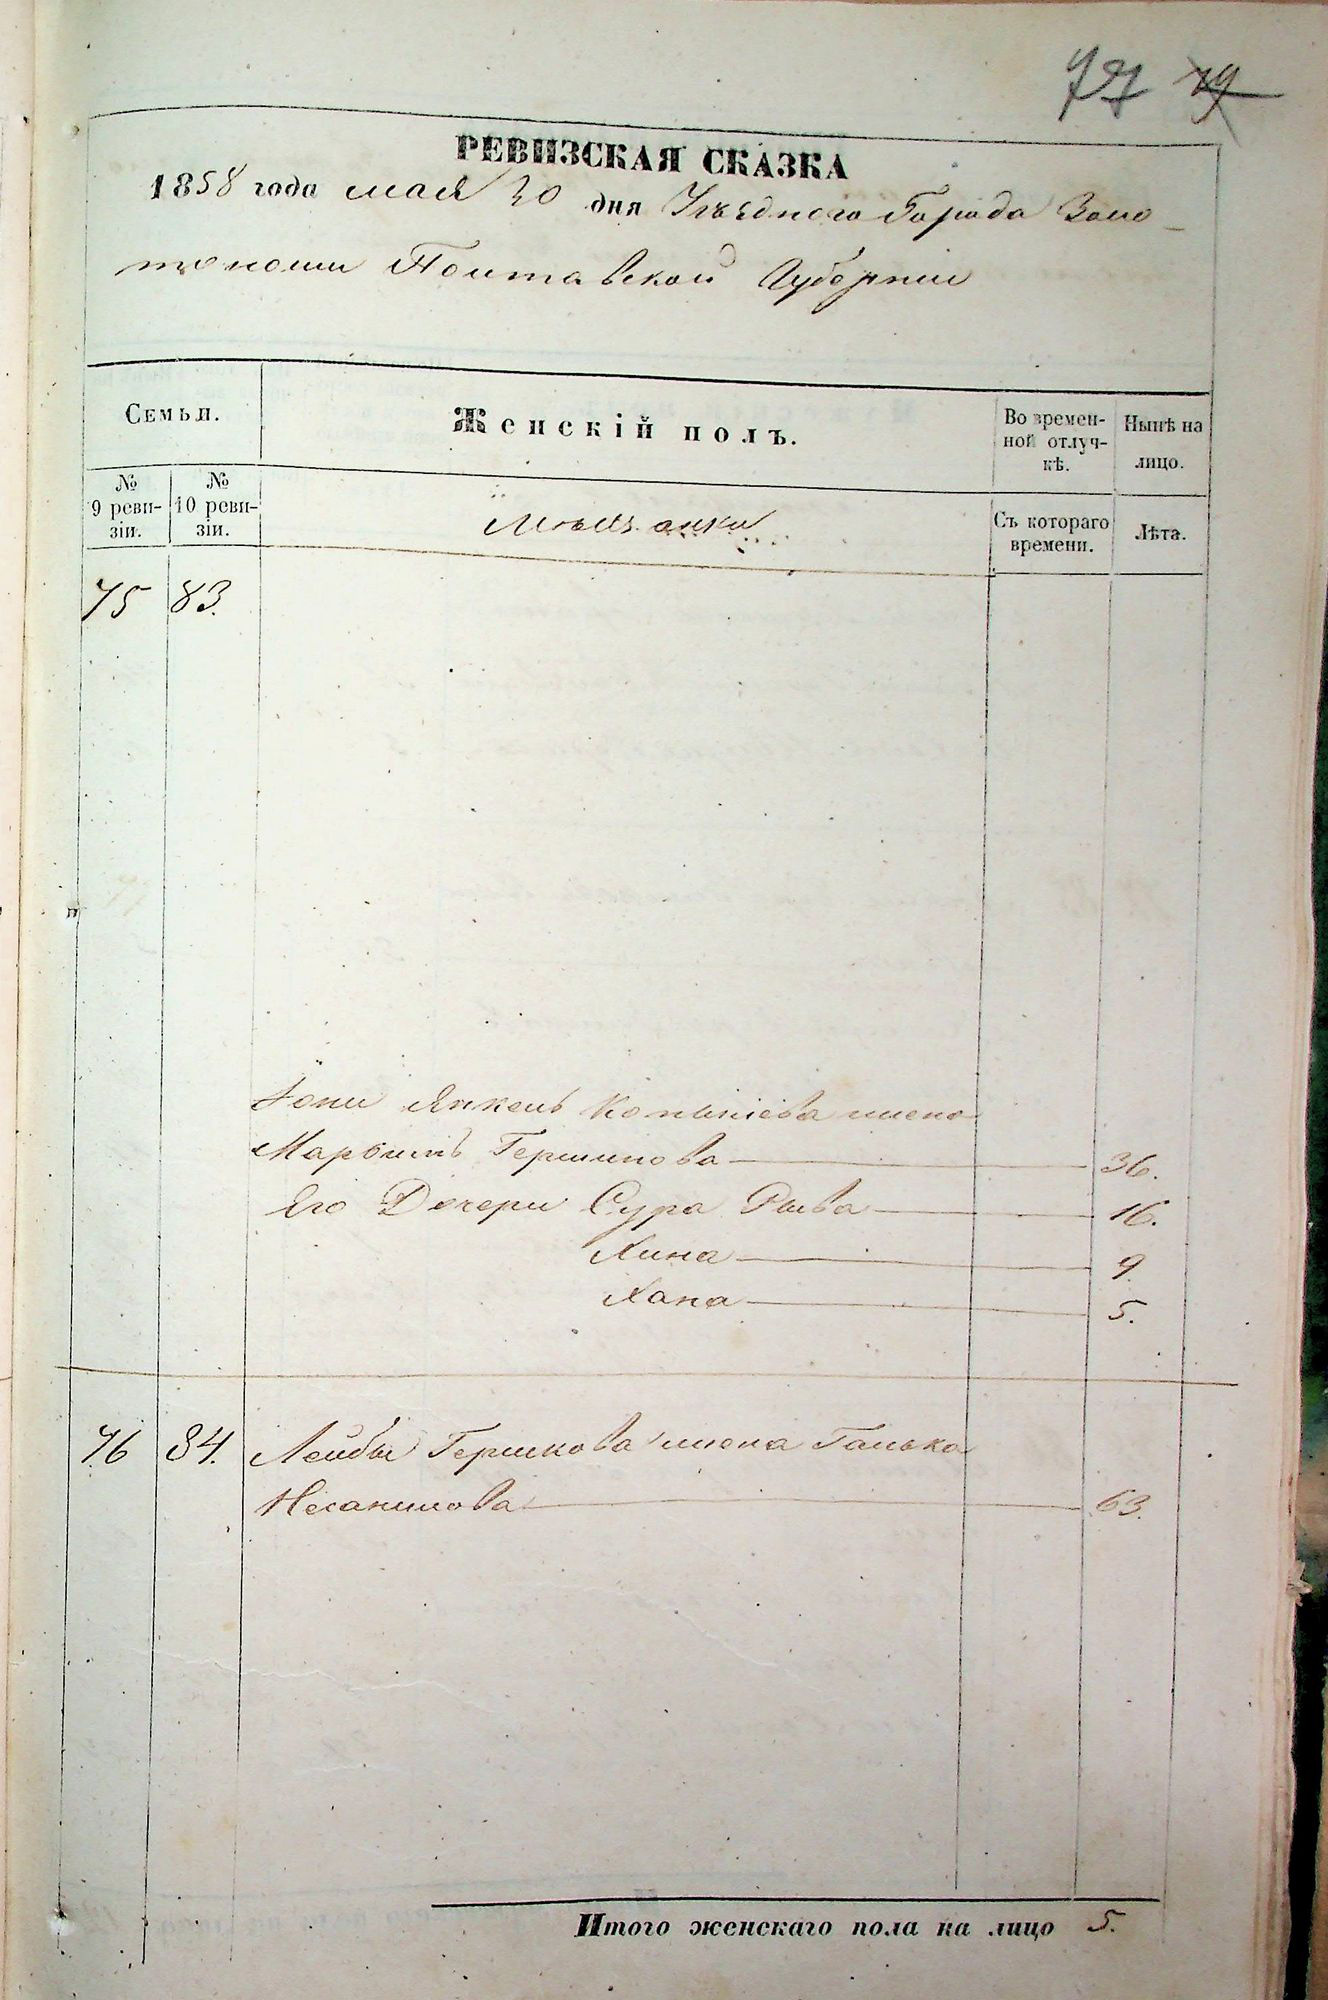 77 79
РЕВИЗСКАЯ СКАЗКА
1858 года мая 30 дня Уѣзднаго Города Золо-
тоноши Полтавской Губерніи
Семьи.
Женскій полъ.
Во времен-
ной отлуч-
кѣ.
Нынѣ на
лицо.
№
9 реви-
зіи.
№
10 реви-
зіи.
Мѣщанки
Съ котораго
времени.
Лѣта.
75 83.
Іоны Янкель жена
Гершкова 36.
Его Дочери Сура Рыва 16.
Хина 9.
Хана 5.
76 84. Лейбы Гершкова жена Галька
63.
Итого женскаго пола на лицо 5.